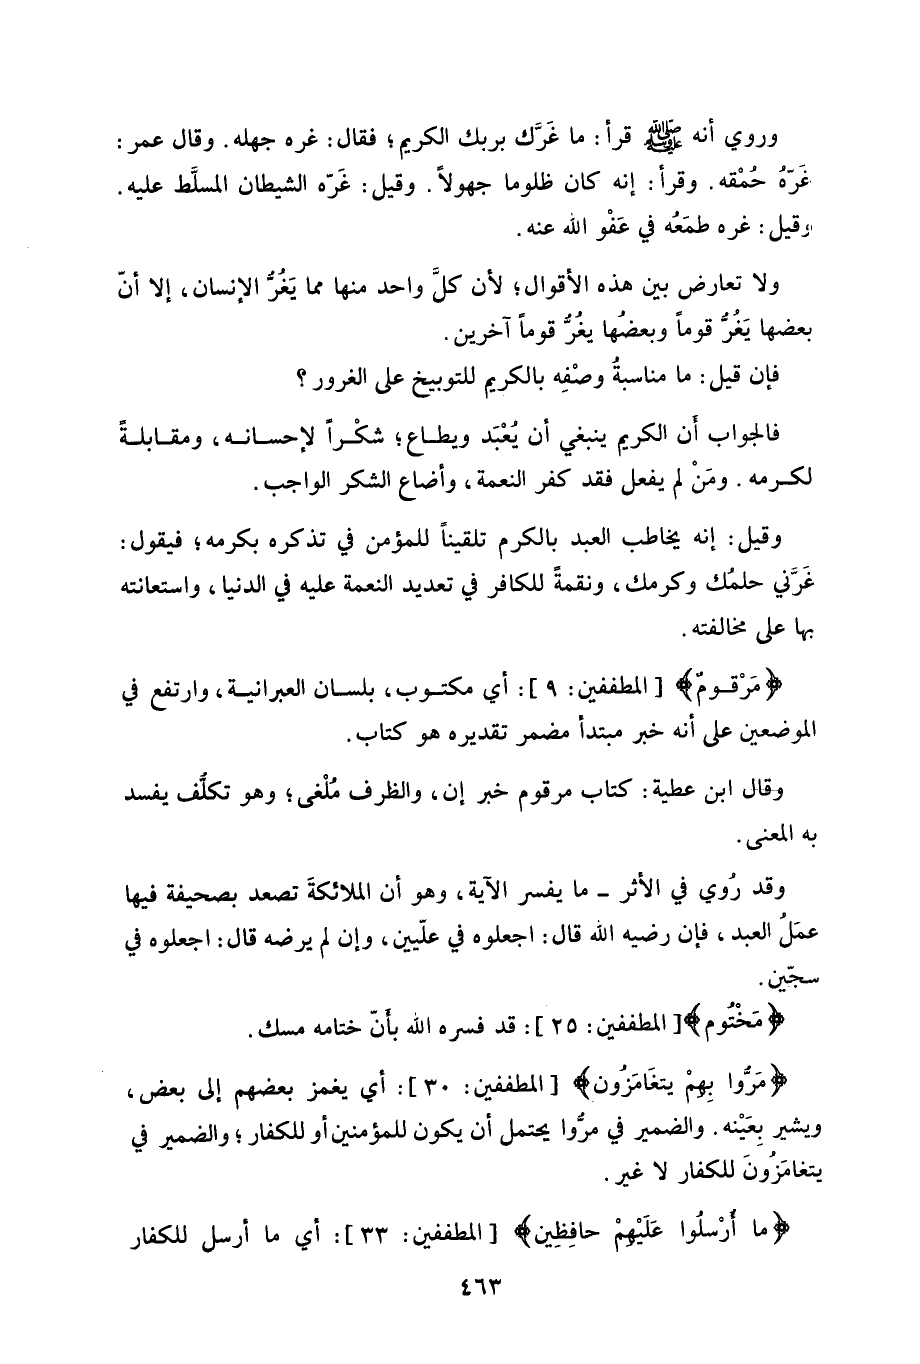 وروي أنه ﷺ قرأ: ما غَرَّك بربك الكريم؛ فقال: غره جهله. وقال عمر:
غَرّهُ حُمْقه. وقرأ: إنه كان ظلوما جهولاً. وقيل: غَرّه الشيطان المسلَّط عليه.
وقيل: غره طمَعُه في عَفْو الله عنه.
ولا تعارض بين هذه الأقوال؛ لأن كلَّ واحد منها مما يَغُرُّ الإنسان، إلا أنّ
بعضها يَغُرُّ قوماً وبعضُها يغرُّ قوماً آخرين.
فإن قيل: ما مناسبةُ وصْفِه بالكريم للتوبيخ على الغرور؟
فالجواب أَن الكريم ينبغي أن يُعْبَد ويطـاع؛ شكْـراً لإحسـانـه، ومقـابلـةً
لكـرمه. ومَنْ لم يفعل فقد كفر النعمة، وأضاع الشكر الواجب.
وقيل: إنه يخاطب العبد بالكرم تلقيناً للمؤمن في تذكره بكرمه؛ فيقول:
غَرَّني حلمُك وكرمك، ونقمةً للكافر في تعديد النعمة عليه في الدنيا، واستعانته
بها على مخالفته.
﴿مَرْقـومٌ﴾ [المطففين: ٩]: أي مكتـوب، بلسـان العبرانيـة، وارتفع في
الموضعين على أنه خبر مبتدأ مضمر تقديره هو كتاب.
وقال ابن عطية: كتاب مرقوم خبر إن، والظرف مُلْغى؛ وهو تكلُّف يفسد
به المعنى.
وقد رُوي في الأثر ـ ما يفسر الآية، وهو أن الملائكةَ تصعد بصحيفة فيها
عمَلُ العبد، فإن رضيه الله قال: اجعلوه في علّيين، وإن لم يرضه قال: اجعلوه في
سجّين.
﴿مَخْتُوم﴾[المطففين: ٢٥]: قد فسره الله بأَنّ ختامه مسك.
﴿مَرُّوا بِهِمْ يتغَامَزُون﴾ [المطففين: ٣٠]: أي يغمز بعضهم إلى بعض،
ويشير بِعَيْنه. والضمير في مرُّوا يحتمل أن يكون للمؤمنين أو للكفار؛ والضمير في
يتغامَزُونَ للكفار لا غير.
﴿ما أَرْسلُوا عَلَيْهِمْ حافِظِين﴾ [المطففين: ٣٣]: أي ما أرسل للكفار
٤٦٣